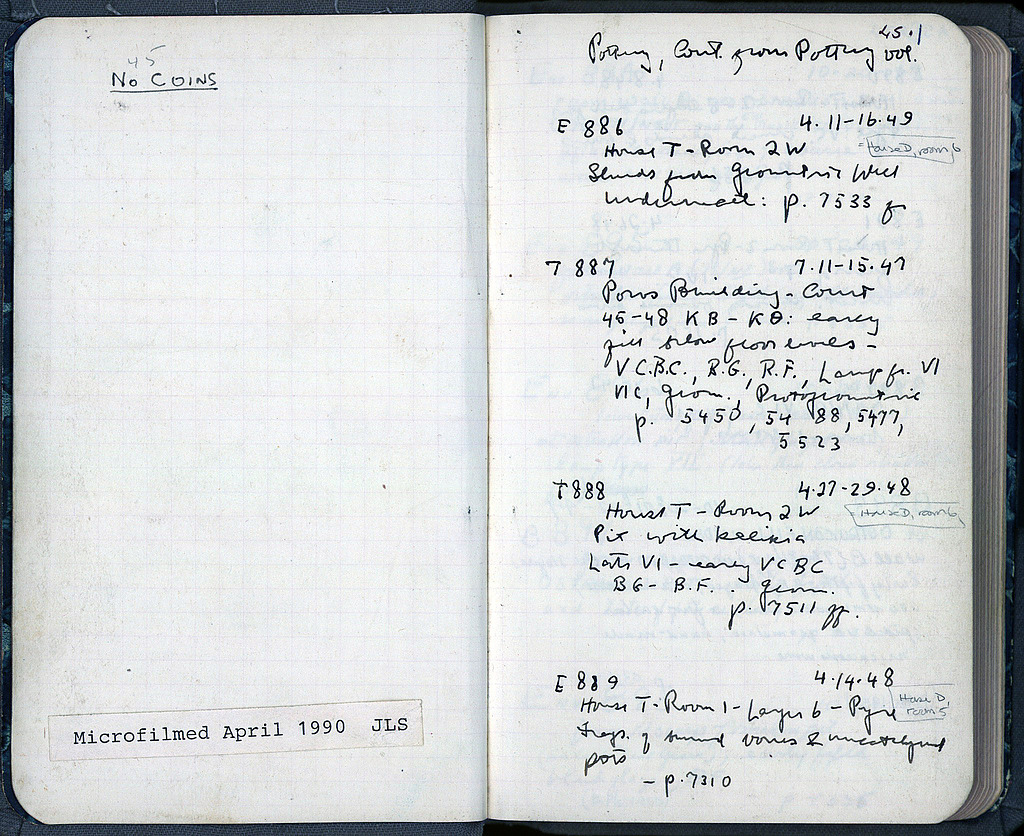 45
No COINS
Microfilmed April 1990 JLS
45.1
Pottery, Cont. from Pottery vol.
E 886 4.11-16.49
House T - Room 2 W = House D, room 6
Sherds from Geometric Well
underneath: p. 7533 f
T 887 7.11-15.47
Poros Building - Court
46-48 ΚΒ - ΚΘ: early
fill below floor levels -
V C.B.C., B.G., R.F., Lamp fr. VI
VIC, Geom., Protogeometric
p. 5450, 54 88, 5477,
5523
T 888 4.27-29.48
House T - Room 2 W = House D, room 6
Pit with
Late VI - early V C BC
BG - B.F. . Geom.
p. 7511 ff.
E 889 4.14.48
House T - Room 1 - Layer 6 - Pyre House D, room 5
Frags. of burned bones &
pots
- p. 7310